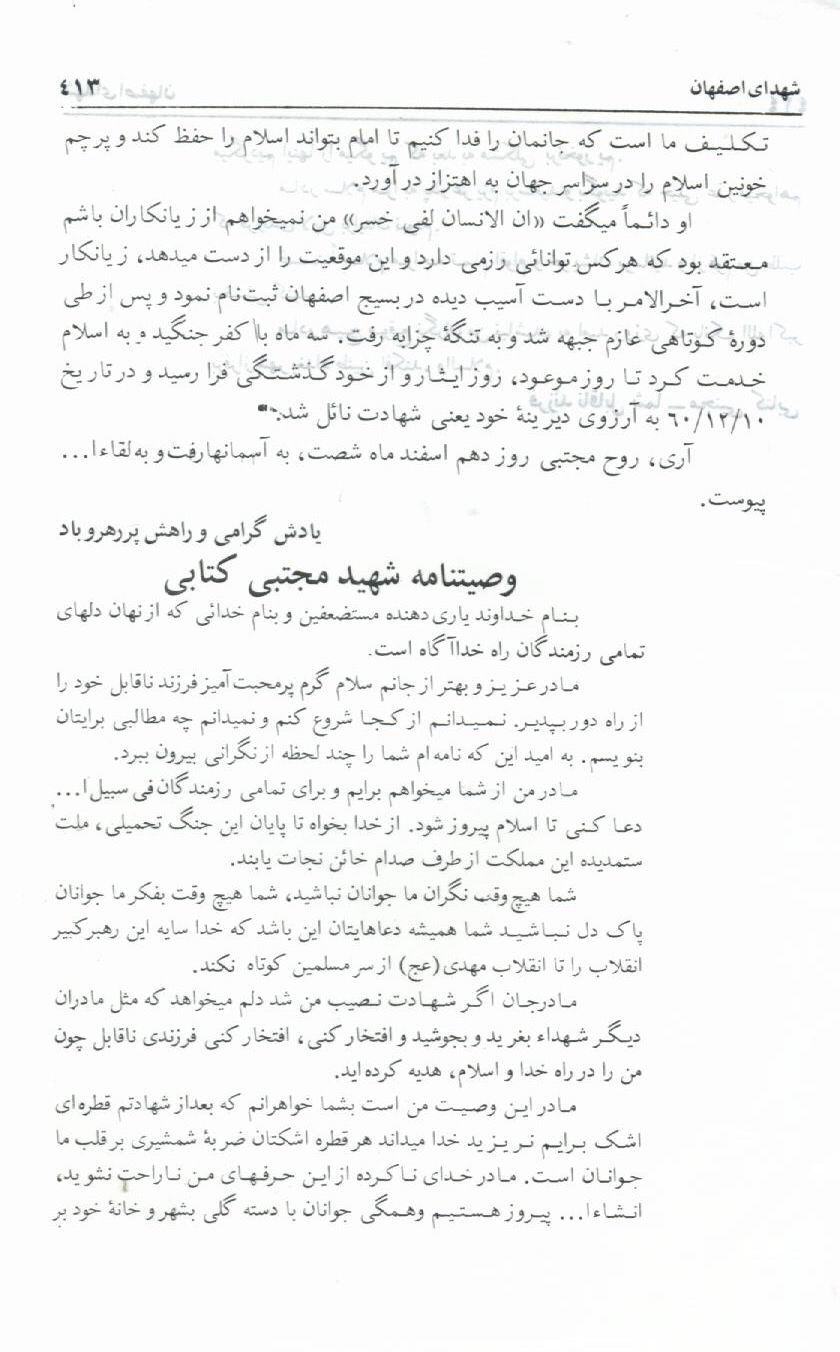 شهدای اصفهان ٤١٣
تکلیف ما است که جانمان را فدا کنیم تا امام بتواند اسلام را حفظ کند و پرچم
خونین اسلام را در سراسر جهان به اهتزاز در آورد.
او دائماً میگفت «ان الانسان لفی خسر» من نمیخواهم از زیانکاران باشم
معتقد بود که هرکس توانائی رزمی دارد و این موقعیت را از دست میدهد، زیانکار
است، آخرالامر با دست آسیب دیده در بسیج اصفهان ثبت‌نام نمود و پس از طی
دورهٔ کوتاهی عازم جبهه شد و به تنگهٔ چزابه رفت. سه ماه با کفر جنگید و به اسلام
خدمت کرد تا روز موعود، روز ایثار و از خود گذشتگی فرا رسید و در تاریخ
۶۰/۱۲/۱۰ به آرزوی دیرینهٔ خود یعنی شهادت نائل شد.
آری، روح مجتبی روز دهم اسفند ماه شصت، به آسمانها رفت و به لقاءا...
پیوست.
یادش گرامی و راهش پررهرو باد
وصیتنامه شهید مجتبی کتابی
بنام خداوند یاری دهنده مستضعفین و بنام خدائی که از نهان دلهای
تمامی رزمندگان راه خدا آگاه است.
مادر عزیز و بهتر از جانم سلام گرم پرمحبت آمیز فرزند ناقابل خود را
از راه دور بپذیر. نمیدانم از کجا شروع کنم و نمیدانم چه مطالبی برایتان
بنویسم. به امید این که نامه ام شما را چند لحظه از نگرانی بیرون ببرد.
مادر من از شما میخواهم برایم و برای تمامی رزمندگان فی سبیل ا...
دعا کنی تا اسلام پیروز شود. از خدا بخواه تا پایان این جنگ تحمیلی، ملت
ستمدیده این مملکت از طرف صدام خائن نجات یابند.
شما هیچ وقت نگران ما جوانان نباشید، شما هیچ وقت بفکر ما جوانان
پاک دل نباشید شما همیشه دعاهایتان این باشد که خدا سایه این رهبر کبیر
انقلاب را تا انقلاب مهدی (عج) از سر مسلمین کوتاه نکند.
مادرجان اگر شهادت نصیب من شد دلم میخواهد که مثل مادران
دیگر شهداء بغرید و بجوشید و افتخار کنی، افتخار کنی فرزندی ناقابل چون
من را در راه خدا و اسلام، هدیه کرده اید.
مادر این وصیت من است بشما خواهرانم که بعد از شهادتم قطره ای
اشک برایم نریزید خدا میداند هر قطره اشکتان ضربهٔ شمشیری بر قلب ما
جوانان است. مادر خدای ناکرده از این حرفهای من ناراحت نشوید،
انشاءا... پیروز هستیم وهمگی جوانان با دسته گلی بشهر و خانهٔ خود بر